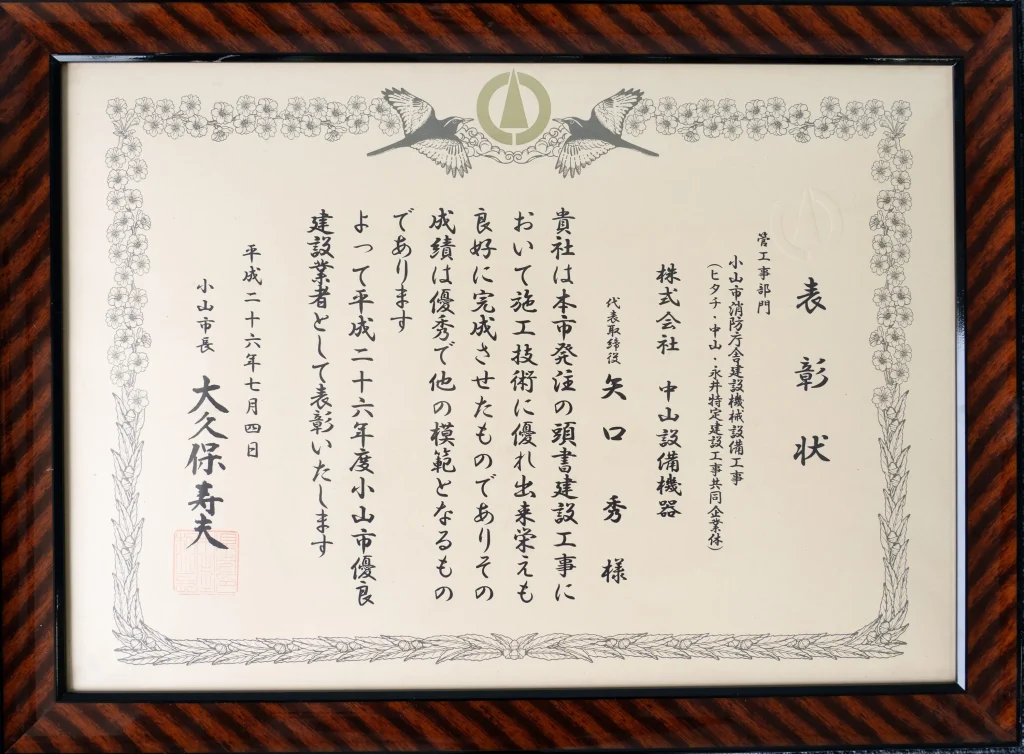 表彰状
管工事部門
小山市消防庁舎建設機械設備工事
(ヒタチ・中山・永井特定建設工事共同企業体)
株式会社 中山設備機器
代表取締役 矢口 秀 様
貴社は本市発注の頭書建設工事に
おいて施工技術に優れ出来栄えも
良好に完成させたものでありその
成績は優秀で他の模範となるもの
であります
よって平成二十六年度小山市優良
建設業者として表彰いたします
平成二十六年七月四日
小山市長 大久保寿夫